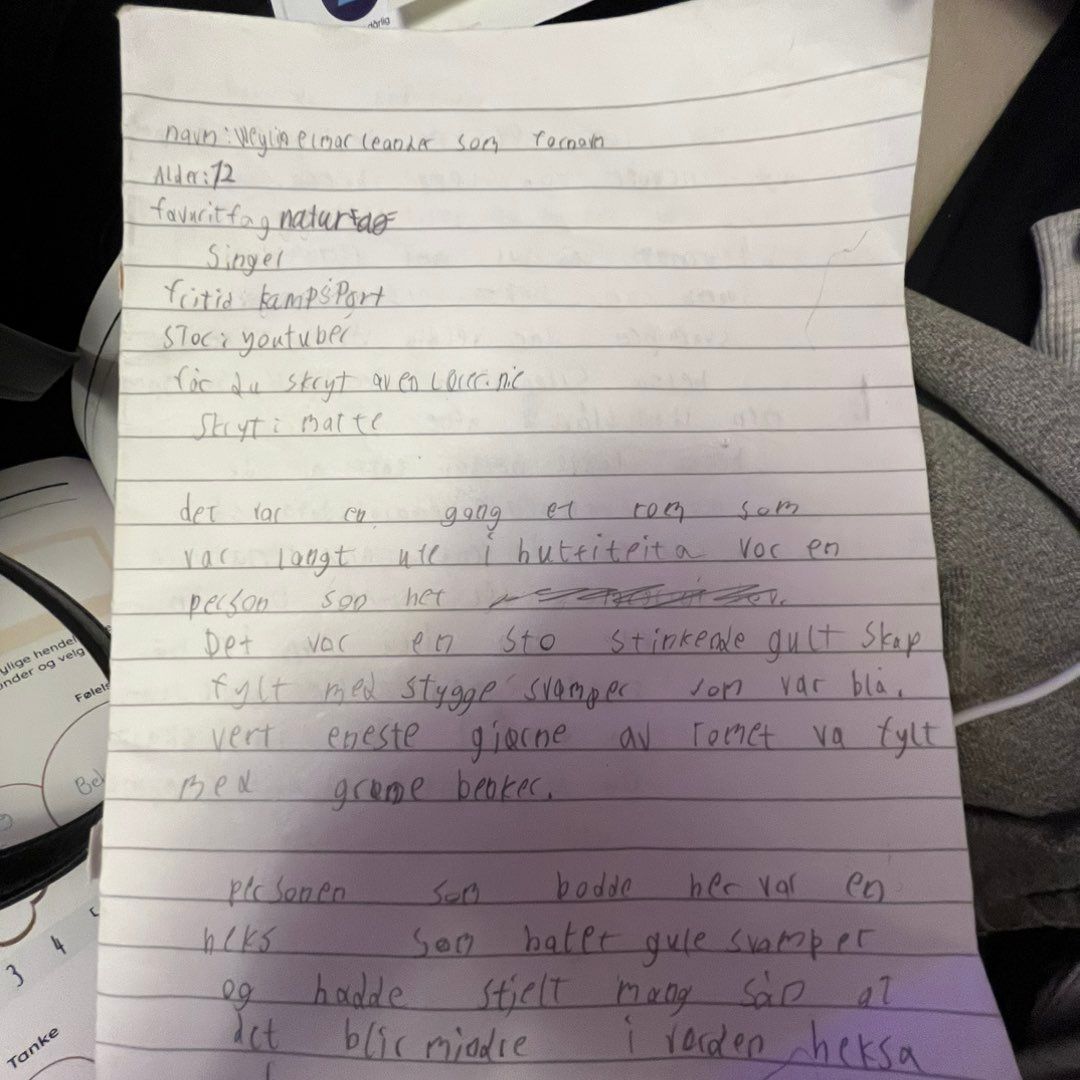 dårlig
navn: Weylin elmar leander som fornavn
Alder: 12
favuritfag naturfag
Singel
fritid kampsport
STOr: youtuber
får du skryt av en lærer. nie
Skryt i matte
det var en gang et rom som
var langt ute i huttiteita vor en
person son het
Det var en sto stinkende gult skap
fylt med stygge svamper som var blå.
vert eneste gjørne av romet va fylt
med grønne benker.
personen som bodde her var en
heks som hater gule svamper
og hadde stjelt mang sån at
det blir mindre i verden heksa
ylige hendel
nder og velg
Følels
Bel
3 4
Tanke